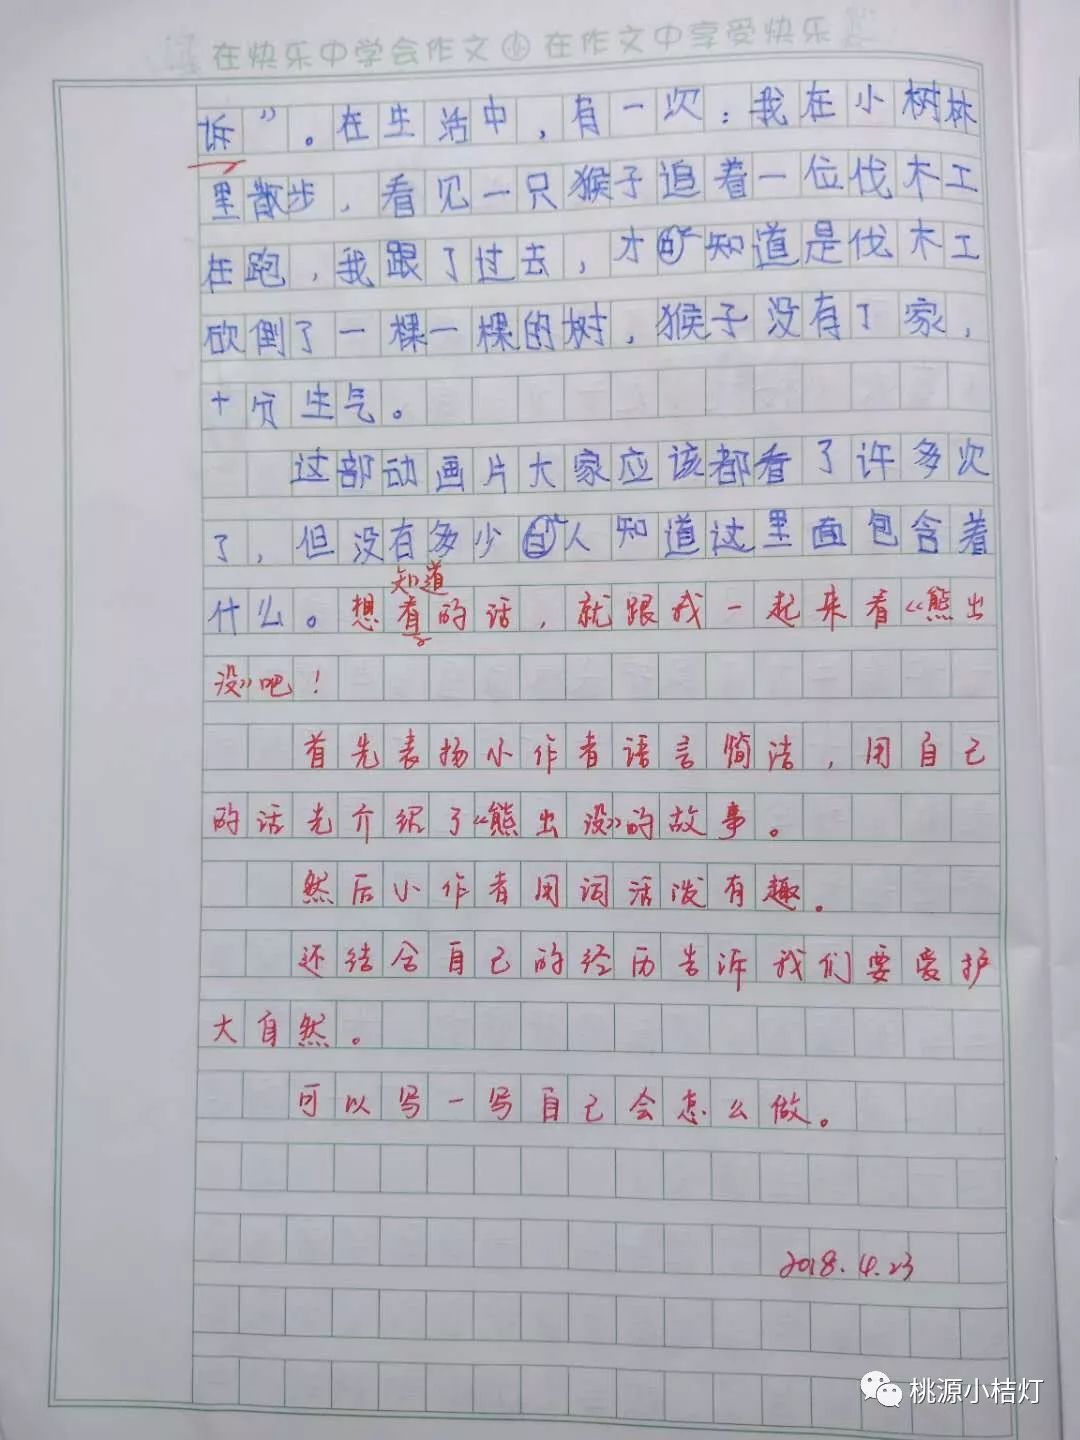 在快乐中学会作文 在作文中享受快乐
诉”。在生活中，有一次：我在小树林
里散步，看见一只猴子追着一位伐木工
在跑，我跟了过去，才知道是伐木工
砍倒了一棵一棵的树，猴子没有了家，
十分生气。
这部动画片大家应该都看了许多次
了，但没有多少人知道这里面包含着
知道
什么。想看的话，就跟我一起来看《熊出
没》吧！
首先表扬小作者语言简洁，用自己
的话先介绍了《熊出没》的故事。
然后小作者用词活泼有趣。
还结合自己的经历告诉我们要爱护
大自然。
可以写一写自己会怎么做。
2018.4.23
桃源小桔灯